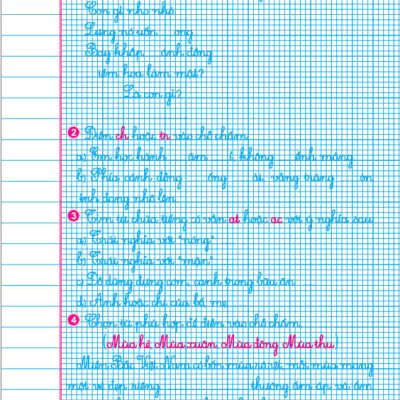 Con gì nho nhỏ
Lưng nó uốn cong
Bay khắp cánh đồng
tìm hoa làm mật?
Là con gì?
2 Điền ch hoặc tr vào chỗ chấm
a) Em học hành ...ăm ...ỉ, không ...ểnh mảng
b) Phía cánh đồng ... ống ... ải, vầng trăng ... òn
tỉnh đang nhô lên
3 Tìm từ chứa tiếng có vần at hoặc ac với ý nghĩa sau
a) Trái nghĩa với "nóng" ...
b) Trái nghĩa với "mặn" ...
c) Đồ dùng đựng cơm, canh trong bữa ăn ...
d) Anh hoặc chị của bố mẹ ...
4 Chọn từ phù hợp để điền vào chỗ chấm
(Mùa hè Mùa xuân Mùa đông Mùa thu)
Miền Bắc Việt Nam có bốn mùa rõ rệt, mỗi mùa mang
một vẻ đẹp riêng ... thường ấm áp và ẩm